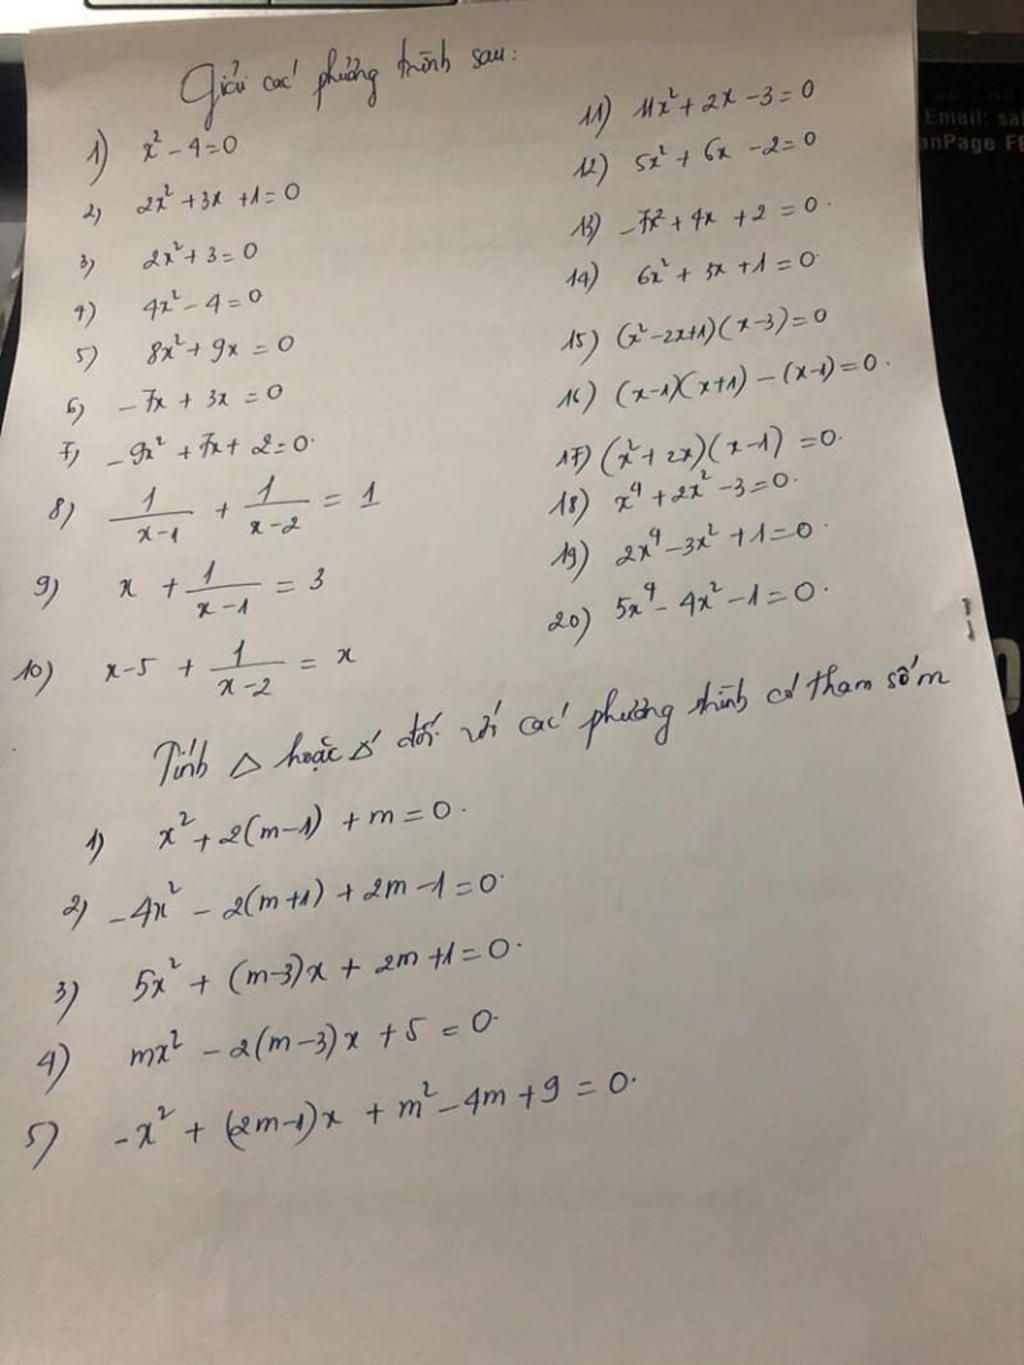 Giải các phương trình sau:
1) x² - 4 = 0
2) 2x² + 3x + 1 = 0
3) 2x² + 3 = 0
4) 4x² - 4 = 0
5) 8x² + 9x = 0
6) -7x + 3x = 0
7) -9x² + 7x + 2 = 0.
8) 1/(x-1) + 1/(x-2) = 1
9) x + 1/(x-1) = 3
10) x-5 + 1/(x-2) = x
11) 11x² + 2x - 3 = 0
12) 5x² + 6x - 2 = 0
13) -7x² + 4x + 2 = 0.
14) 6x² + 3x + 1 = 0
15) (x²-2x+1)(x-3) = 0
16) (x-1)(x+1) - (x-1) = 0.
17) (x² + 2x)(x-1) = 0.
18) x⁴ + 2x² - 3 = 0.
19) 2x⁴ - 3x² + 1 = 0.
20) 5x⁴ - 4x² - 1 = 0.
Tính Δ hoặc Δ' đối với các phương trình có tham số m
1) x² + 2(m-1) + m = 0.
2) -4x² - 2(m+1) + 2m - 1 = 0.
3) 5x² + (m-3)x + 2m + 1 = 0.
4) mx² - 2(m-3)x + 5 = 0.
5) -x² + (2m-1)x + m² - 4m + 9 = 0.
Email: sa
anPage F